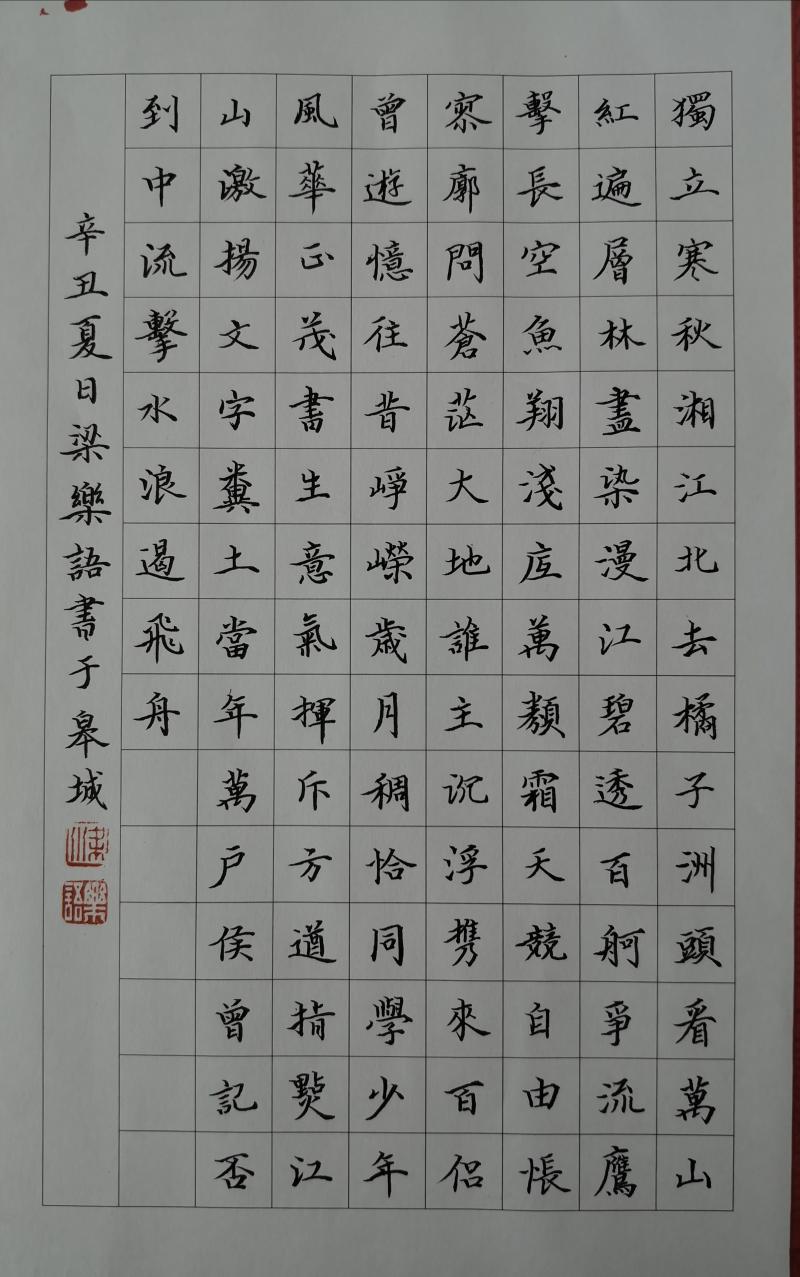 獨立寒秋湘江北去橘子洲頭看萬山
紅遍層林盡染漫江碧透百舸爭流鷹
擊長空魚翔淺底萬類霜天競自由悵
寥廓問蒼茫大地誰主沉浮攜來百侶
曾遊憶往昔崢嶸歲月稠恰同學少年
風華正茂書生意氣揮斥方遒指點江
山激揚文字糞土當年萬戶侯曾記否
到中流擊水浪遏飛舟
辛丑夏日梁樂語書于皋城
梁
樂語